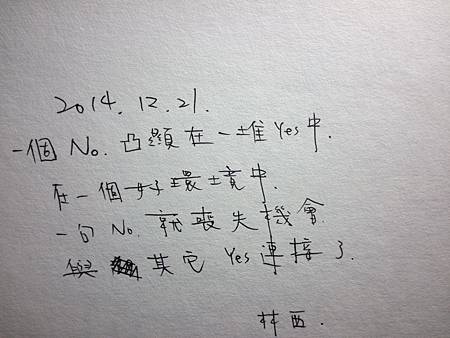 2014.12.21.
一個 No. 凸顯在一堆 Yes 中.
在一個好環境中.
一句 No. 就喪失機會.
與其它 Yes 連接了.
林西.